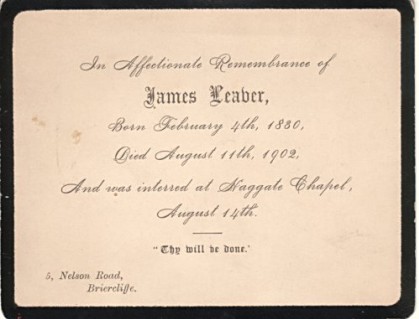 In Affectionate Remembrance of
James Leaver,
Born February 4th, 1830,
Died August 11th, 1902,
And was interred at Haggate Chapel,
August 14th.
"Thy will be done.'
5, Nelson Road,
Briercliffe.